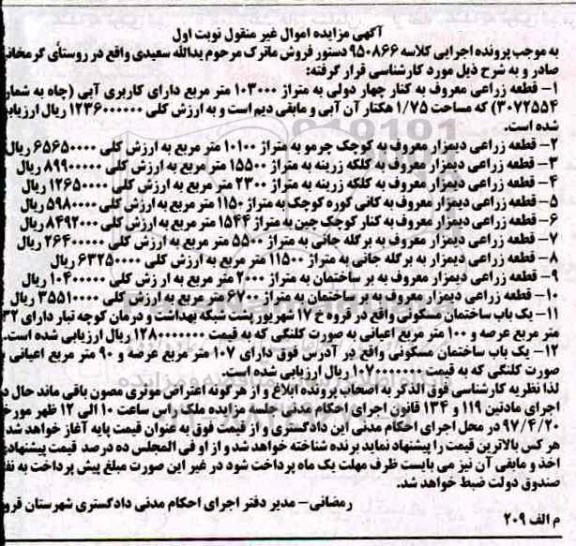 آگهی مزایده اموال غیر منقول نوبت اول
به موجب پرونده اجرایی کلاسه ۹۵۰۸۶۶ دستور فروش ماترک مرحوم یدالله سعیدی واقع در روستای گرمخانی
صادر و به شرح ذیل مورد کارشناسی قرار گرفته:
۱- قطعه زراعی معروف به کنار چهار دولی به متراژ ۱۰۳۰۰۰ متر مربع دارای کاربری آبی (چاه به شماره
۳۰۷۲۵۵۴) که مساحت ۱/۷۵ هکتار آن آبی و مابقی دیم است و به ارزش کلی ۱۲۳۶۰۰۰۰۰۰ ریال ارزیابی
شده است.
۲- قطعه زراعی دیمزار معروف به کوچک چرمو به متراژ ۱۰۱۰۰ متر مربع به ارزش کلی ۶۵۶۵۰۰۰۰ ریال
۳- قطعه زراعی دیمزار معروف به کلکه زرینه به متراژ ۱۵۵۰۰ متر مربع به ارزش کلی ۸۹۹۰۰۰۰۰ ریال
۴- قطعه زراعی دیمزار معروف به کلکه زرینه به متراژ ۲۳۰۰ متر مربع به ارزش کلی ۱۲۶۵۰۰۰۰ ریال
۵- قطعه زراعی دیمزار معروف به کانی کوره کوچک به متراژ ۱۱۵۰ متر مربع به ارزش کلی ۵۹۸۰۰۰۰ ریال
۶- قطعه زراعی دیمزار معروف به کنار کوچک چین به متراژ ۱۵۴۴ متر مربع به ارزش کلی ۸۴۹۲۰۰۰ ریال
۷- قطعه زراعی دیمزار معروف به برگله جانی به متراژ ۵۵۰۰ متر مربع به ارزش کلی ۲۶۴۰۰۰۰۰ ریال
۸- قطعه زراعی دیمزار معروف به برگله جانی به متراژ ۱۱۵۰۰ متر مربع به ارزش کلی ۶۳۲۵۰۰۰۰ ریال
۹- قطعه زراعی دیمزار معروف به بر ساختمان به متراژ ۲۰۰۰ متر مربع به ارزش کلی ۱۰۴۰۰۰۰۰ ریال
۱۰- قطعه زراعی دیمزار معروف به بر ساختمان به متراژ ۶۷۰۰ متر مربع به ارزش کلی ۳۵۵۱۰۰۰۰ ریال
۱۱- یک باب ساختمان مسکونی واقع در قروه خ ۱۷ شهریور پشت شبکه بهداشت و درمان کوچه تبار دارای
متر مربع عرصه و ۱۰۰ متر مربع اعیانی به صورت کلنگی که به قیمت ۱۲۸۰۰۰۰۰۰۰ ریال ارزیابی شده است.
۱۲- یک باب ساختمان مسکونی واقع در آدرس فوق دارای ۱۰۷ متر مربع عرصه و ۹۰ متر مربع اعیانی
صورت کلنگی که به قیمت ۱۰۷۰۰۰۰۰۰۰ ریال ارزیابی شده است.
لذا نظریه کارشناسی فوق الذکر به اصحاب پرونده ابلاغ و از هرگونه اعتراض موثری مصون باقی ماند حال در
اجرای مادتین ۱۱۹ و ۱۳۴ قانون اجرای احکام مدنی جلسه مزایده ملک راس ساعت ۱۰ الی ۱۲ ظهر مورخ
۹۷/۴/۲۰ در محل اجرای احکام مدنی این دادگستری و از قیمت فوق به عنوان قیمت پایه آغاز خواهد شد
هر کس بالاترین قیمت را پیشنهاد نماید برنده شناخته خواهد شد و از او فی المجلس ده درصد قیمت پیشنهادی
اخذ و مابقی آن نیز می بایست ظرف مهلت یک ماه پرداخت شود در غیر این صورت مبلغ پیش پرداخت به نفع
صندوق دولت ضبط خواهد شد.
رمضانی- مدیر دفتر اجرای احکام مدنی دادگستری شهرستان قروه
م الف ۲۰۹